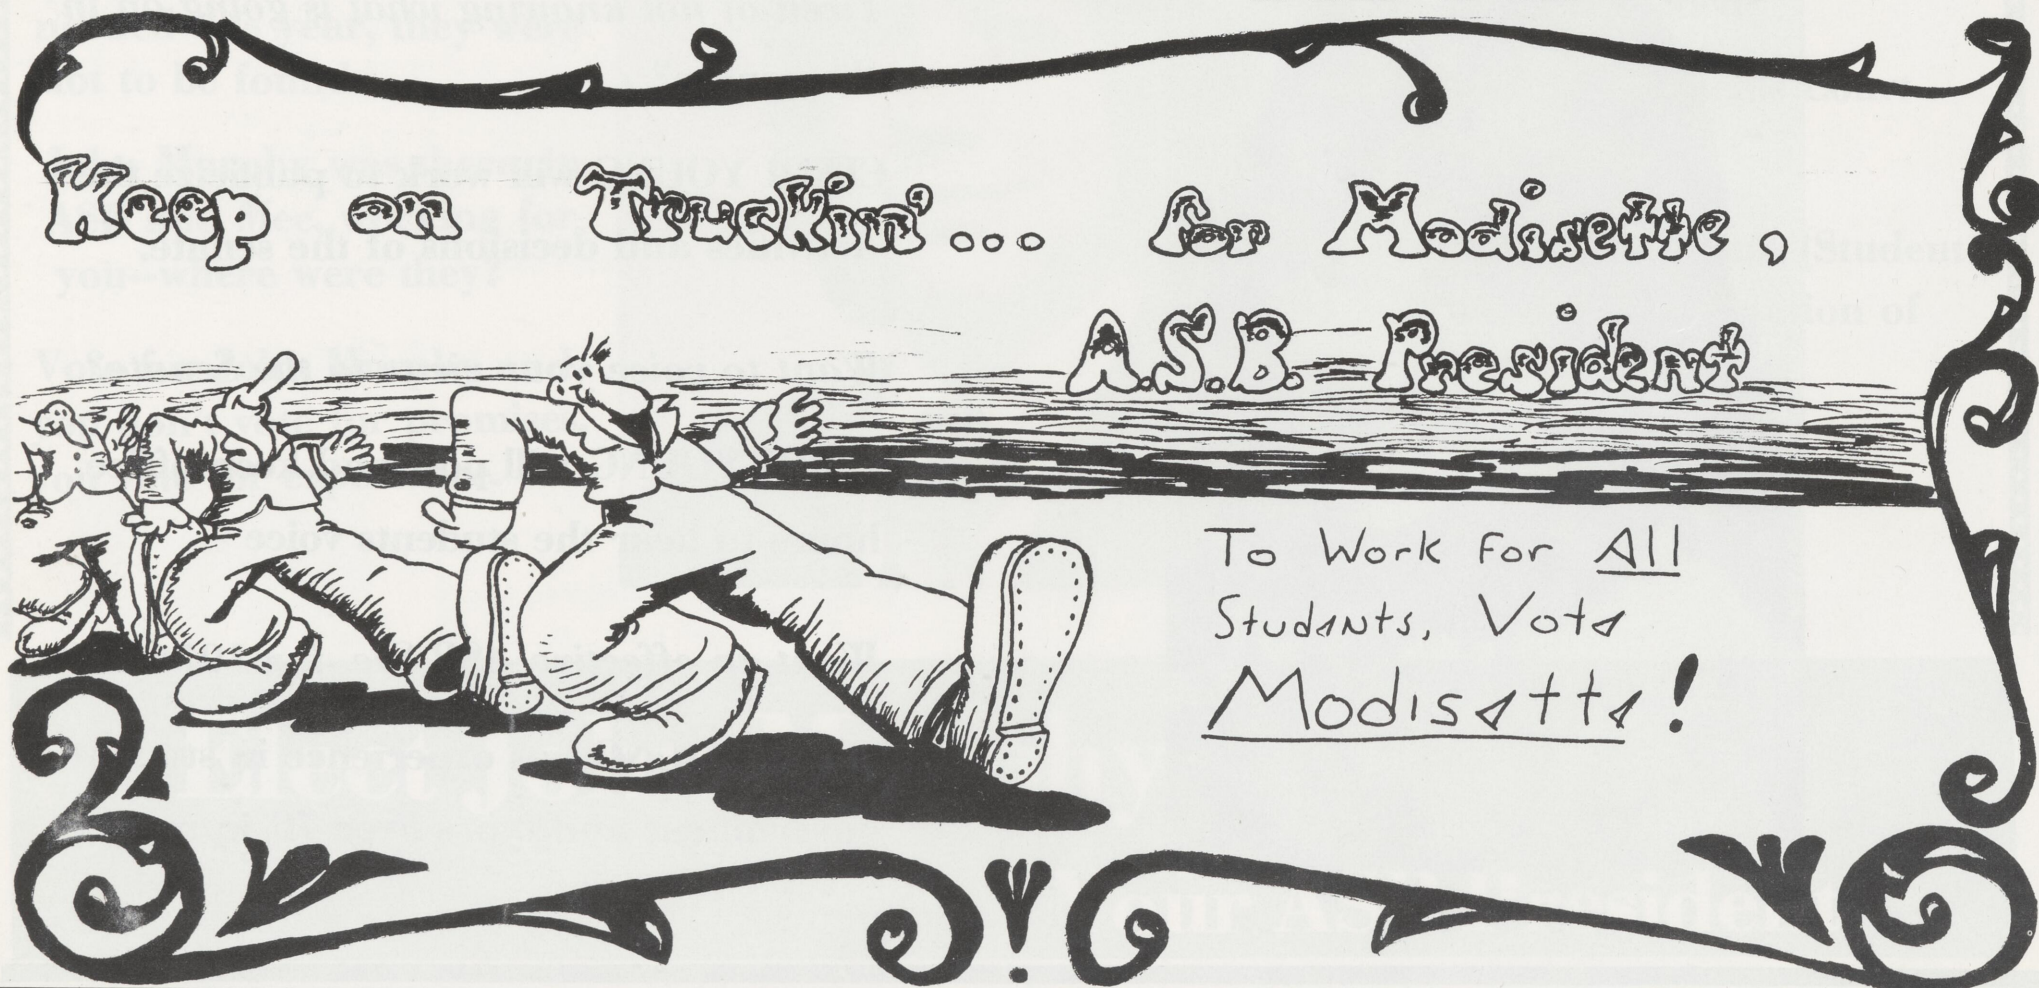 Keep on Truckin'... for Modisette,
A.S.B. President
To Work For All
Students, Vote
Modisette!